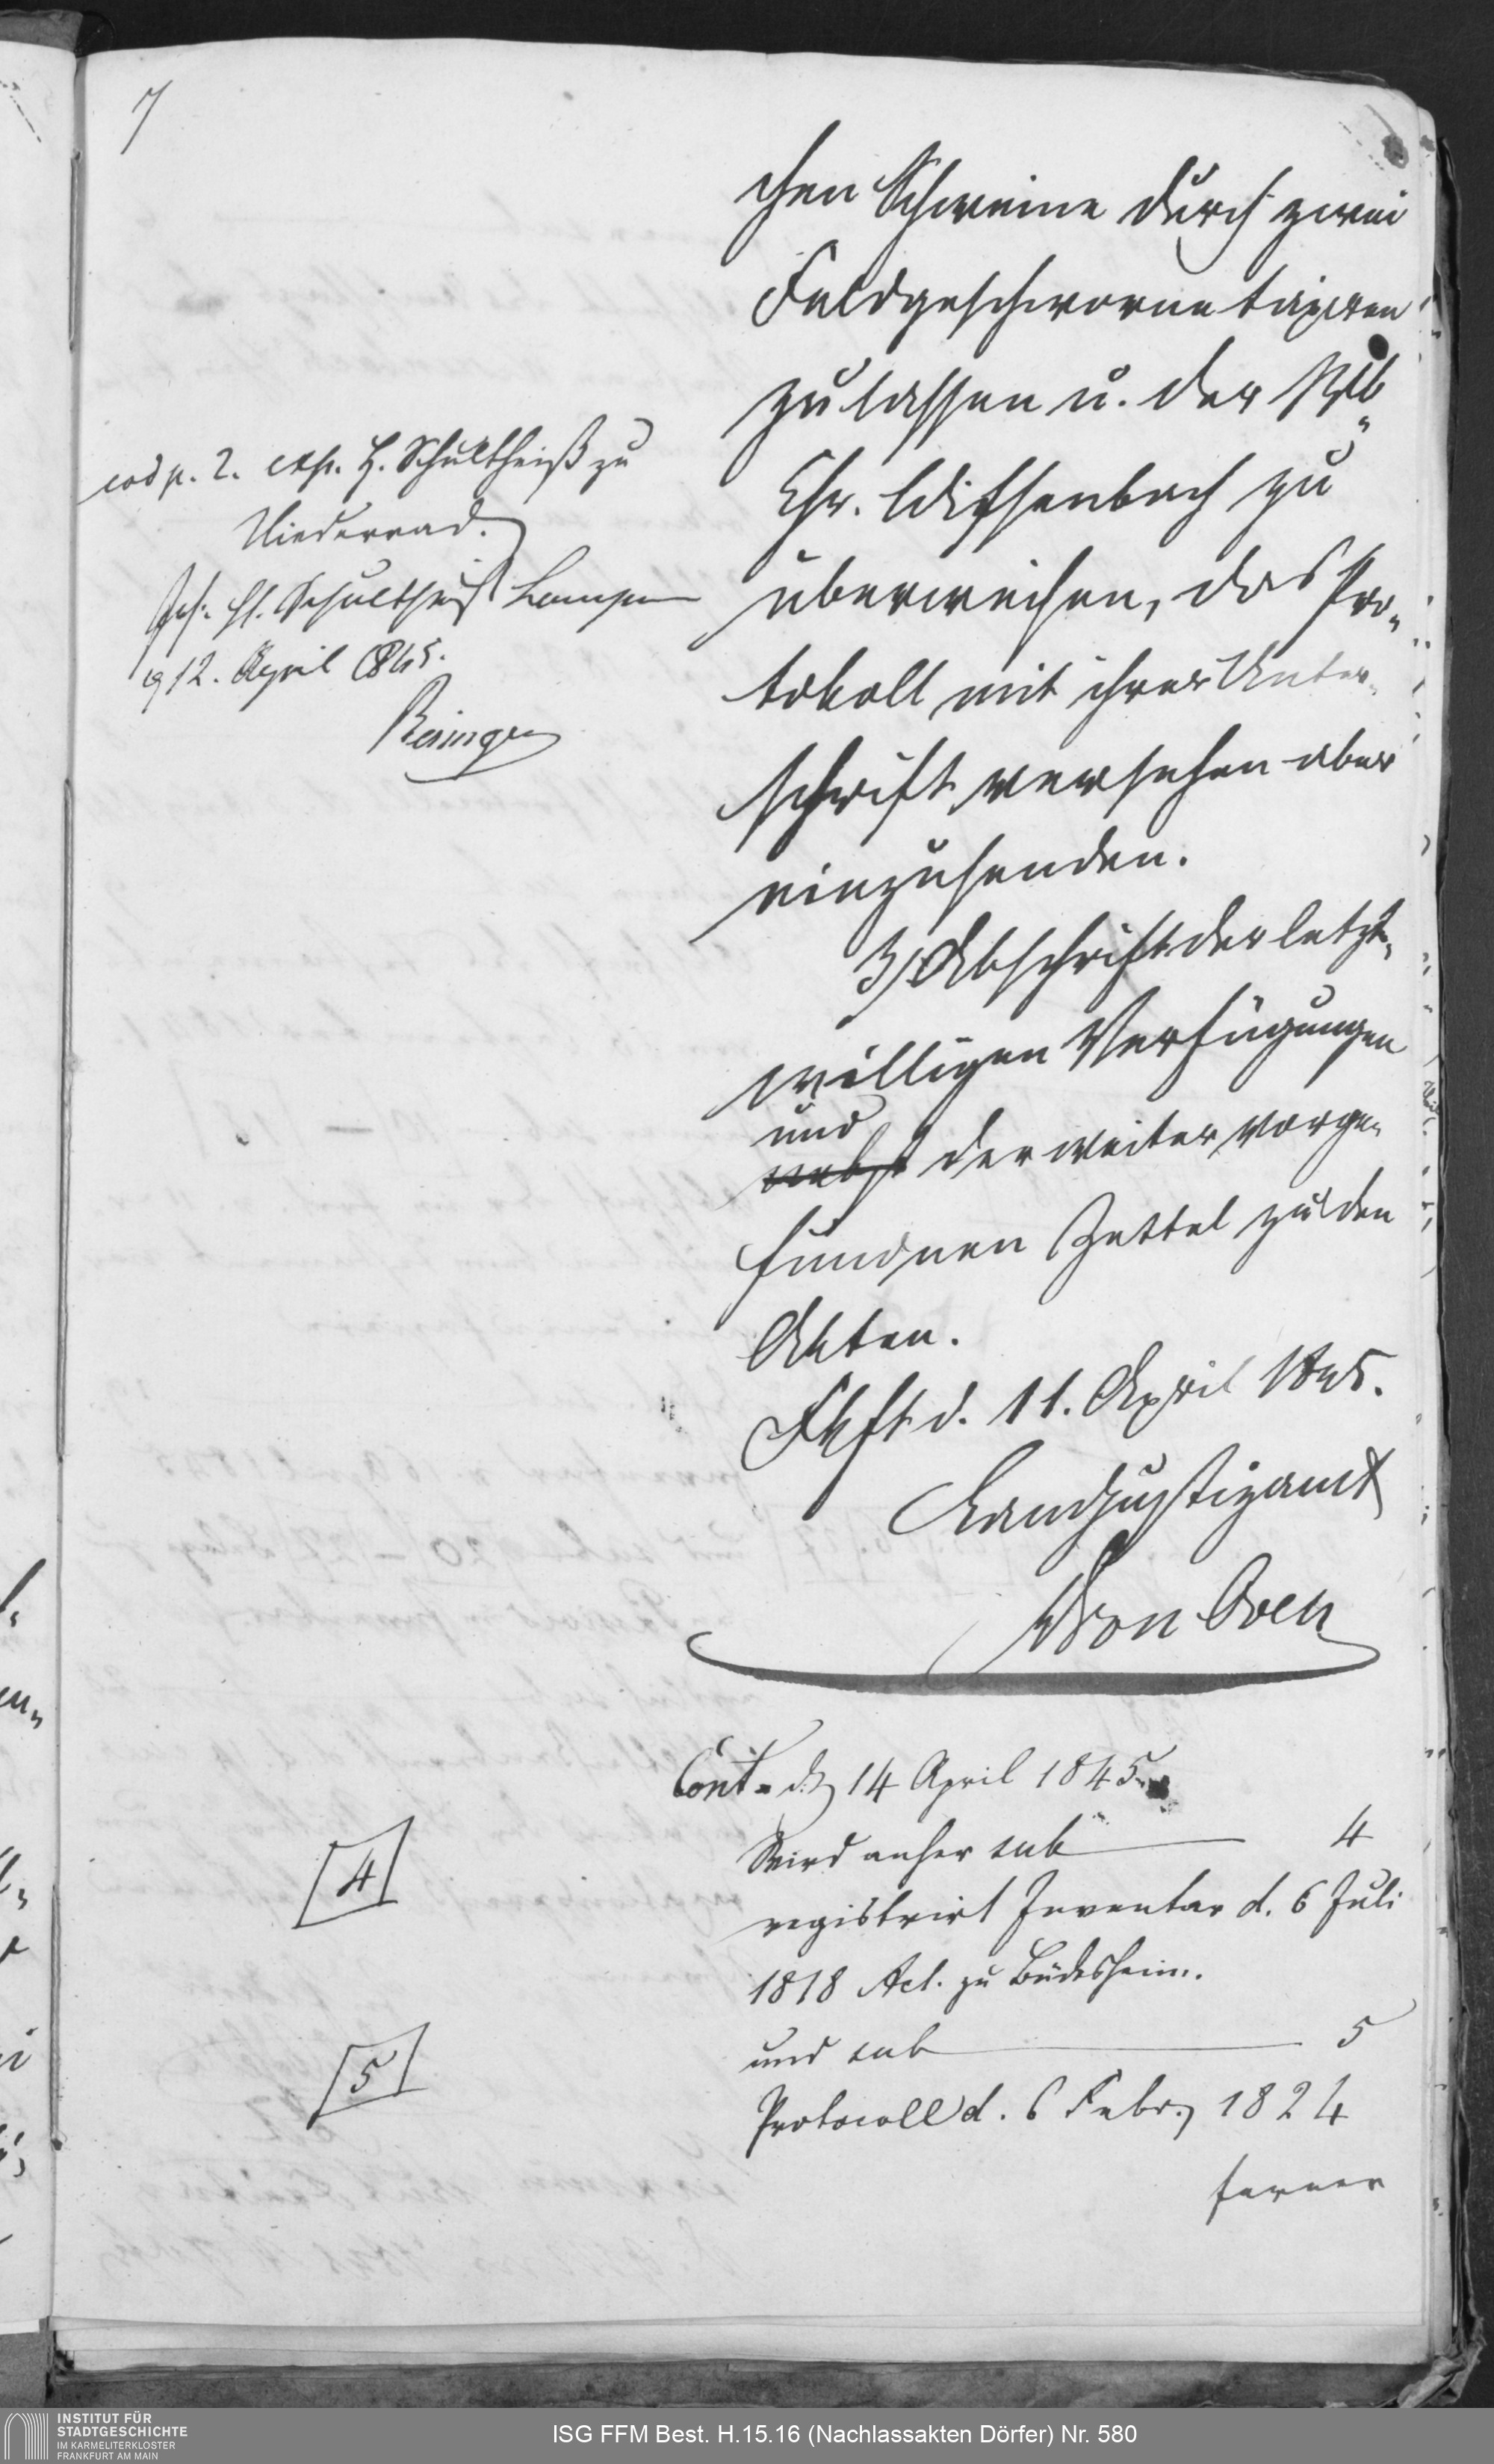 7
chen Schweine durch zwei
Feldgeschworne taxiren
zu lassen u. der
Chr. Diefenbach zu
überweisen, das Pro„
tokoll mit ihrer Unter„
schrift versehen aber
einzusenden.
3/ Abschrift der letzt„
willigen Verfügungen
und
nebst der weiter vorge„
fundnen Zettel zu den
Akten.
Fkft d. 11. April 1845.
Landjustizamt
Von Oven
eod. p. 2. exp. H. Schultheiß zu
Niederrad.
Ins. H. Schultheiß
12. April 1845.
Reinger
Cont. 14 April 1845
4
Wird anher sub 4
registrirt Inventar d. 6 Juli
1818 Act. zu Büdesheim.
5
und sub 5
Protocoll d. 6 Febr. 1824
ferner
INSTITUT FÜR
STADTGESCHICHTE
IM KARMELITERKLOSTER
FRANKFURT AM MAIN
ISG FFM Best. H.15.16 (Nachlassakten Dörfer) Nr. 580